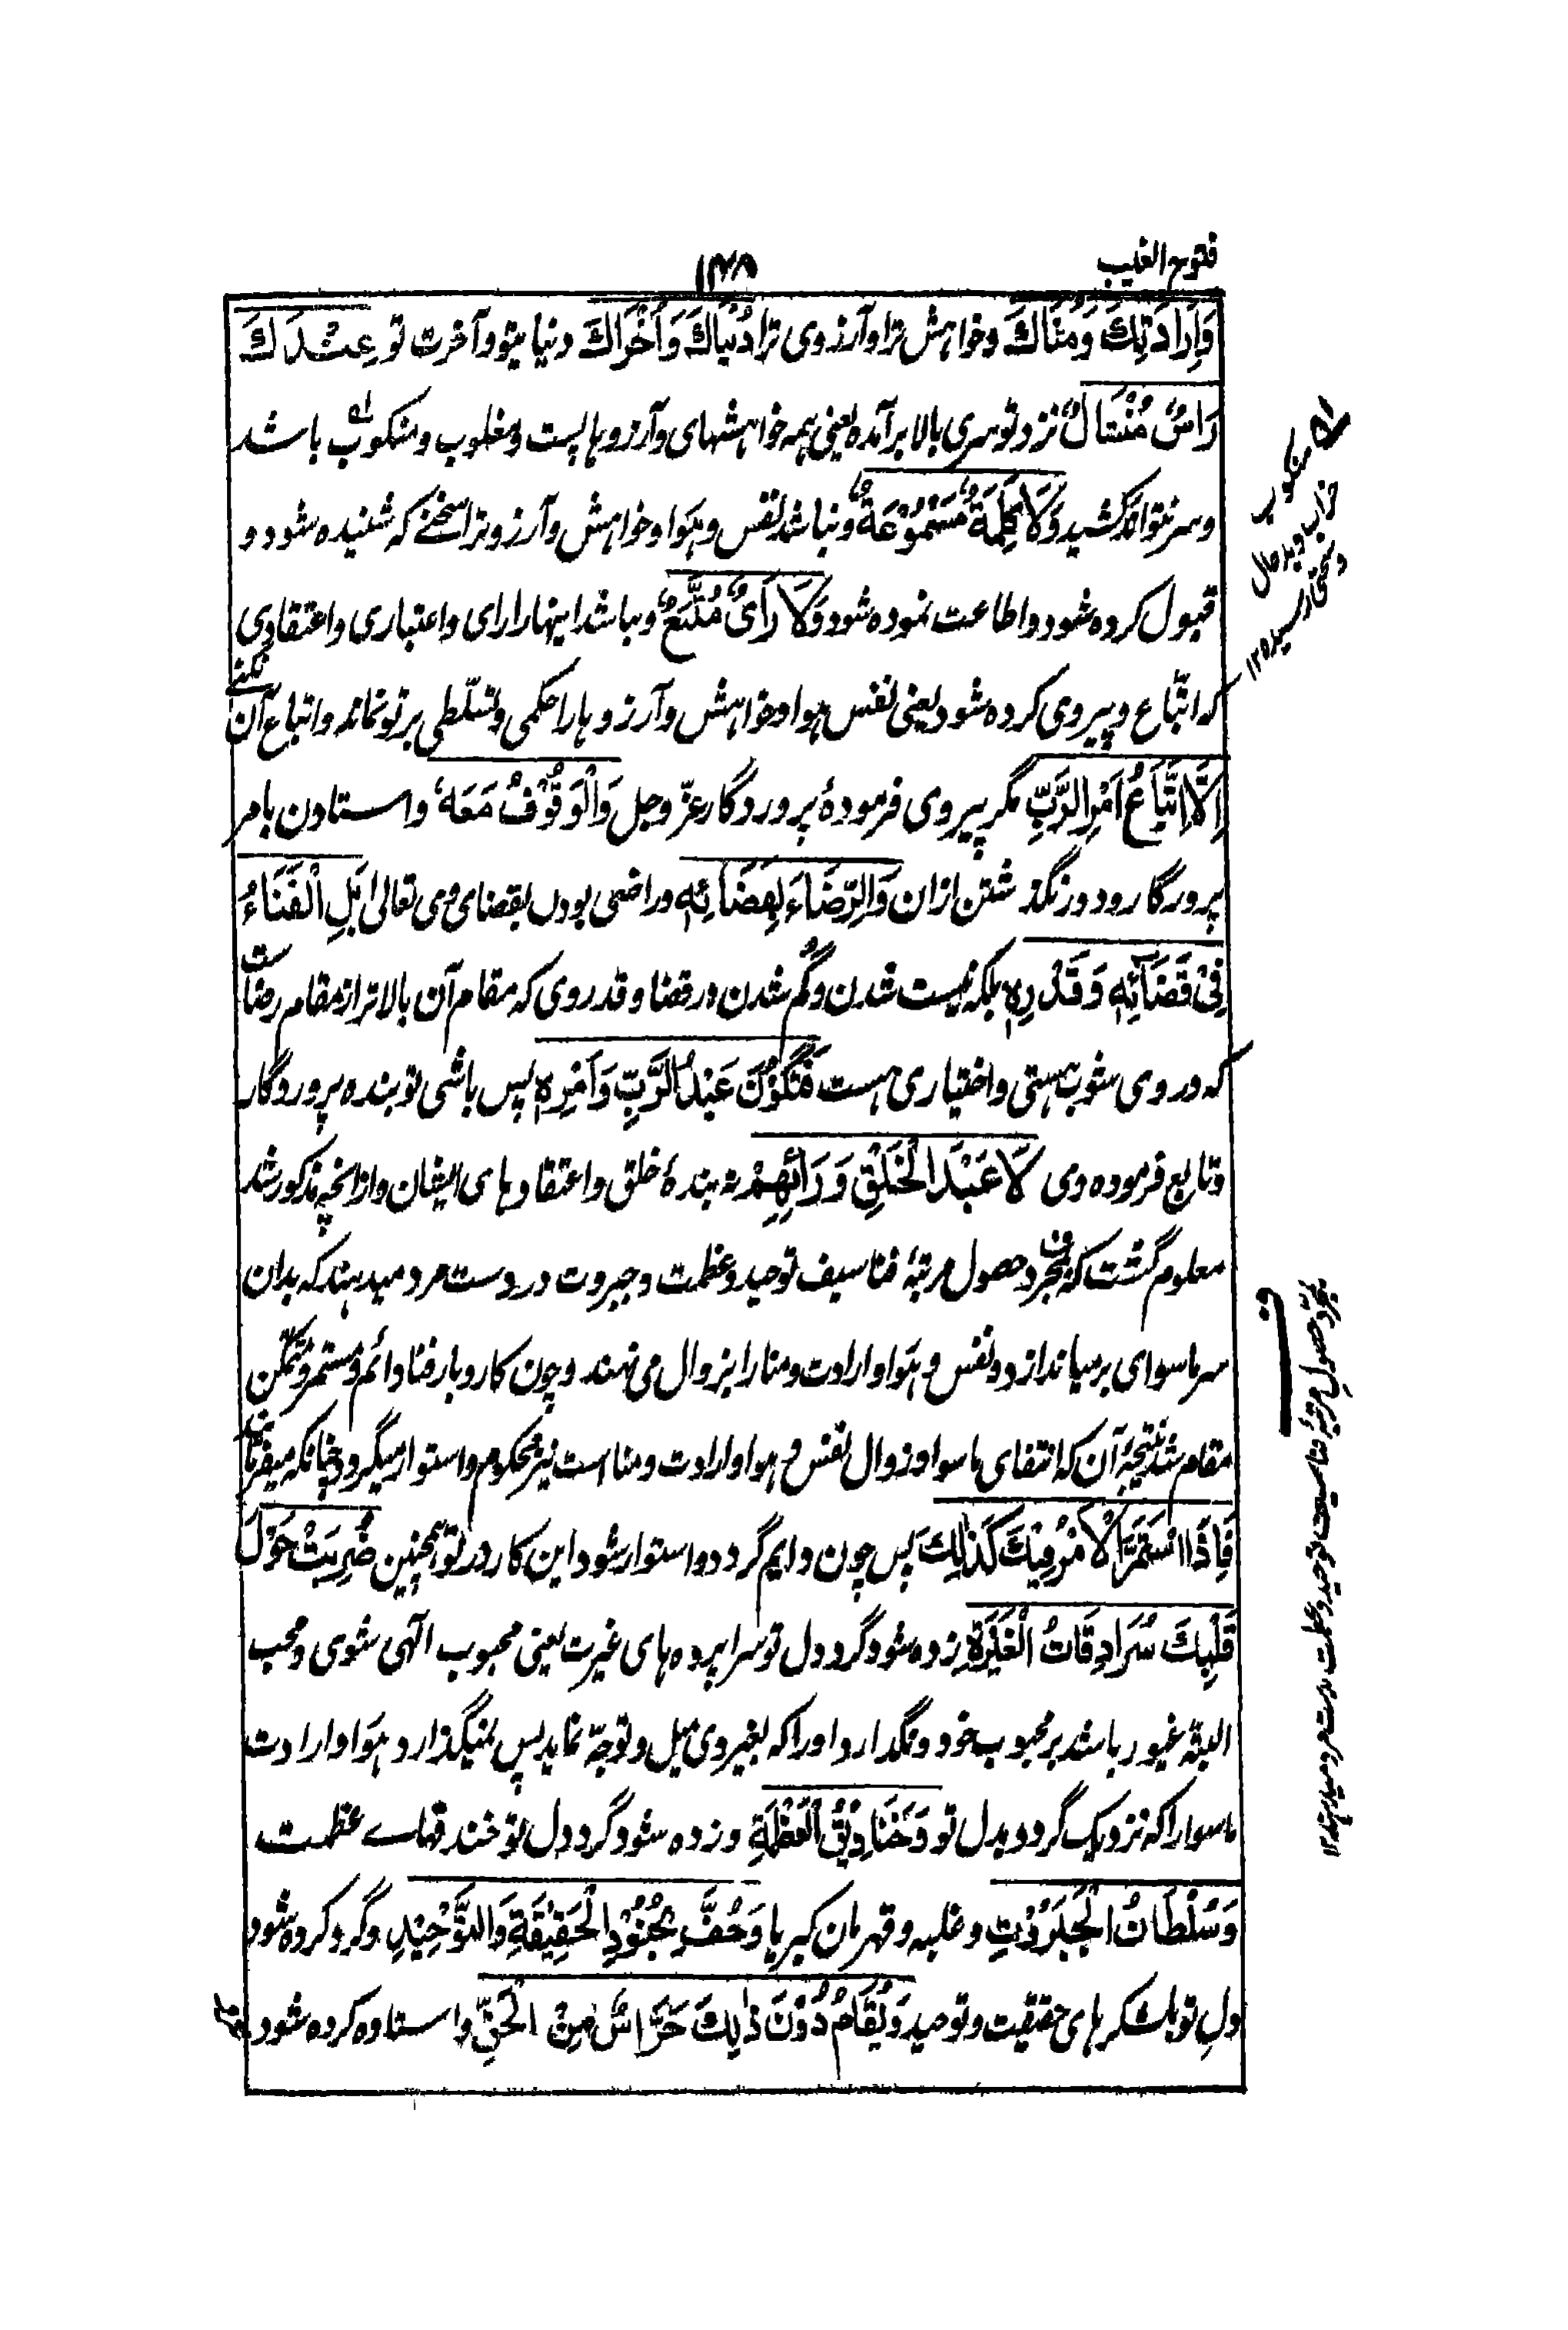 فتوح الغیب
۱۴۸
وَاِرَادَتِكَ وَمُنَاكَ وخواہش ترا وآرزوی ترا دُنْیَاكَ وَاُخْرَاكَ دنیا یتو وآخرت تو عِنْدَكَ
رَاسٌ مُنْشَالٌ نزد تو سری بالا برآمدہ یعنی ہمہ خواہشہای وآرزوہا پست ومغلوب ومنکوب باشد
وسر نتواند کشید وَلَا كَلِمَةٌ مَسْمُوْعَةٌ ونباشد نفس وہوا وخواہش وآرزو ترا سخنے کہ شنیدہ شود و
قبول کردہ شود واطاعت نمودہ شود وَلَا رَأیٌ مُتَّبَعٌ ونباشد اینہا را رای واعتباری واعتقادی
کہ اتباع وپیروی کردہ شود یعنی نفس وہوا وخواہش وآرزوہا را حکمی وتسلّطی بر تو نماند واتباع آن نکنے
اِلَّا اتِّبَاعُ اَمْرِ الرَّبِّ مگر پیروی فرمودۂ پروردگار عزّ وجل وَالْوُقُوْفُ مَعَهٗ واستادن بامر
پرورگار ودر نگذشتن ازان وَالرِّضَاءَ بِقَضَائِهٖ وراضی بودن بقضای وی تعالی بَلِ الْفَنَاءُ
فِیْ قَضَائِهٖ وَقَدْرِهٖ بلکہ نیست شدن وگم شدن در قضا وقدر وی کہ مقام آن بالاتر از مقام رضاست
کہ در وی شوب ہستی واختیاری ہست فَتَكُوْنَ عَبْدَ الرَّبِّ وَاَمْرِهٖ پس باشی تو بندہ پروردگار
وتابع فرمودہ وی لَا عَبْدَ الْخَلْقِ وَرَائِهِمْ نہ بندۂ خلق واعتقادہای ایشان واز انچہ مذکور شد
معلوم گشت کہ بمجرد حصول مرتبۂ فنا سیف توحید وعظمت وجبروت در دست مرد میدہند کہ بدان
سر ماسوای بر میاندازد ونفس وہوا وارادت ومنا را بزوال می نہند وچون کاروبار فنا دائم ومستمر ومتمکن
مقام شد نتیجۂ آن کہ انتفای ماسوا وزوال نفس وہوا وارادت ومنا است نیز محکوم واستوار میگردد چنانکہ میفرمایند
فَاِذَا اسْتَمَرَّ الْاَمْرُ فِیْكَ كَذٰلِكَ پس چون دایم گردد واستوار شود این کار در تو ہمچنین ضُرِبَتْ حَوْلَ
قَلْبِكَ سُرَادِقَاتُ الْغَیْرَةِ زدہ شود گرد دل تو سراپردہ ہای غیرت یعنی محبوب الٰہی شوی ومحب
البتہ غیور باشد بر محبوب خود ونگذارد او را کہ بغیر وی میل وتوجّہ نماید پس نمیگذارد ہوا وارادت
ماسوا را کہ نزدیک گردد بدل تو وَخَنَادِیْقُ الْعَظَمَةِ وزدہ شود گرد دل تو خندقہاے عظمت
وَسُلْطَانُ الْجَبَرُوْتِ وغلبہ وقہرمان کبریا وَحُفَّ بِجُنُوْدِ الْحَقِیْقَةِ وَالتَّوْحِیْدِ وگرد کردہ شود
دل تو بلشکرہای حقیقت وتوحید وَیُقَامُ دُوْنَ ذٰلِكَ حَرَّاسٌ مِنَ الْحَقِّ واستادہ کردہ شود
منکوب
خراب وبدحال
وسختی رسیدہ ۱۲
ف
بمجرد حصول مرتبۂ فنا سیف توحید وعظمت بدست مرد میدہند ۱۲